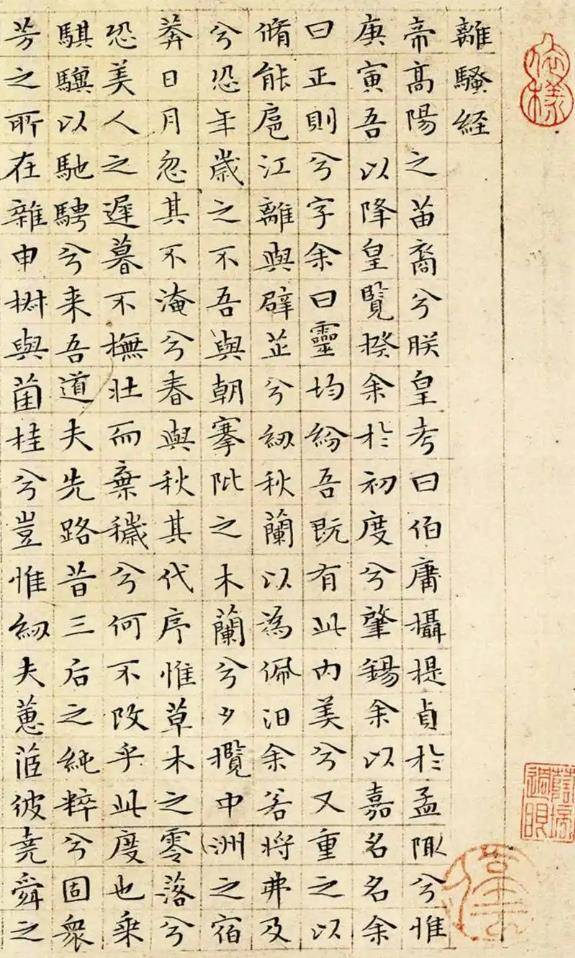 離騷経
帝高陽之苗裔兮朕皇考曰伯庸攝提貞於孟陬兮惟
庚寅吾以降皇覽揆余於初度兮肇錫余以嘉名名余
曰正則兮字余曰靈均紛吾既有此内美兮又重之以
脩能扈江離與辟芷兮紉秋蘭以為佩汨余若將弗及
兮恐年歲之不吾與朝搴阰之木蘭兮夕攬中洲之宿
莽日月忽其不淹兮春與秋其代序惟草木之零落兮
恐美人之遲暮不撫壯而棄穢兮何不改乎此度也乗
騏驥以馳騁兮来吾道夫先路昔三后之純粹兮固衆
芳之所在雜申椒與菌桂兮豈惟紉夫蕙茝彼堯舜之